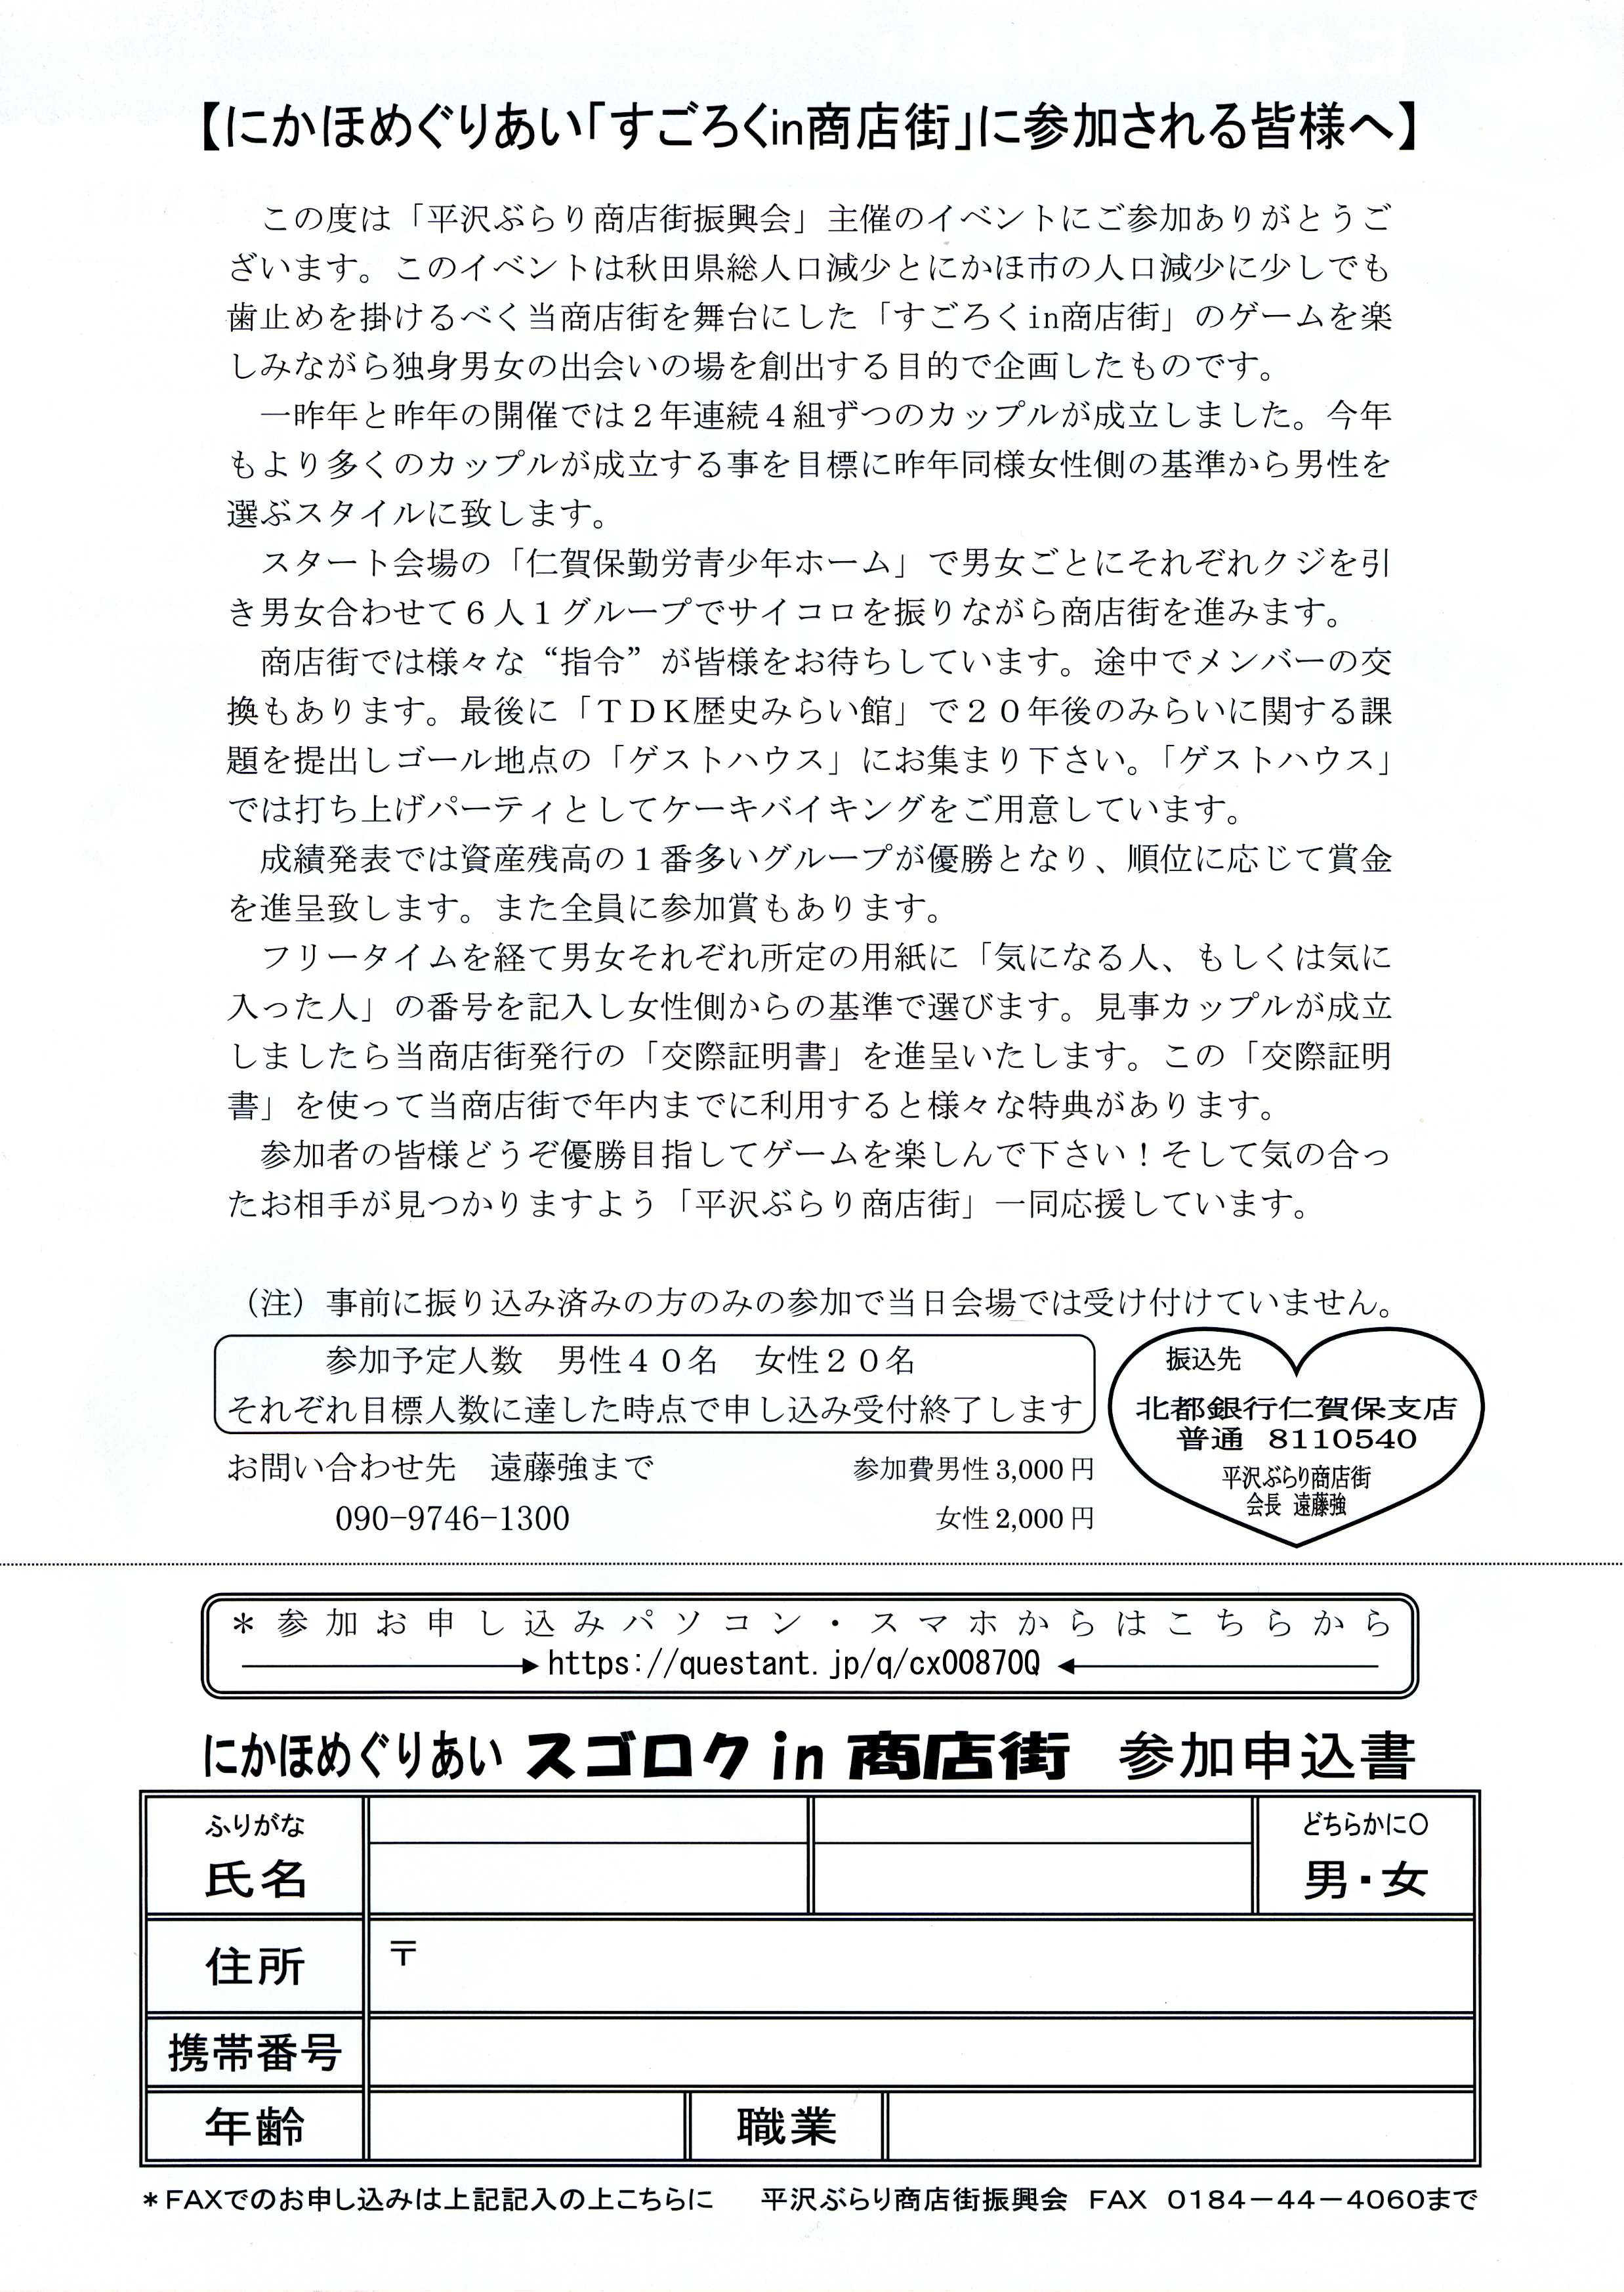 【にかほめぐりあい「すごろくin商店街」に参加される皆様へ】
この度は「平沢ぶらり商店街振興会」主催のイベントにご参加ありがとうご
ざいます。このイベントは秋田県総人口減少とにかほ市の人口減少に少しでも
歯止めを掛けるべく当商店街を舞台にした「すごろくin商店街」のゲームを楽
しみながら独身男女の出会いの場を創出する目的で企画したものです。
一昨年と昨年の開催では２年連続４組ずつのカップルが成立しました。今年
もより多くのカップルが成立する事を目標に昨年同様女性側の基準から男性を
選ぶスタイルに致します。
スタート会場の「仁賀保勤労青少年ホーム」で男女ごとにそれぞれクジを引
き男女合わせて６人１グループでサイコロを振りながら商店街を進みます。
商店街では様々な“指令”が皆様をお待ちしています。途中でメンバーの交
換もあります。最後に「ＴＤＫ歴史みらい館」で２０年後のみらいに関する課
題を提出しゴール地点の「ゲストハウス」にお集まり下さい。「ゲストハウス」
では打ち上げパーティとしてケーキバイキングをご用意しています。
成績発表では資産残高の１番多いグループが優勝となり、順位に応じて賞金
を進呈致します。また全員に参加賞もあります。
フリータイムを経て男女それぞれ所定の用紙に「気になる人、もしくは気に
入った人」の番号を記入し女性側からの基準で選びます。見事カップルが成立
しましたら当商店街発行の「交際証明書」を進呈いたします。この「交際証明
書」を使って当商店街で年内までに利用すると様々な特典があります。
参加者の皆様どうぞ優勝目指してゲームを楽しんで下さい！そして気の合っ
たお相手が見つかりますよう「平沢ぶらり商店街」一同応援しています。
（注）事前に振り込み済みの方のみの参加で当日会場では受け付けていません。
参加予定人数　男性４０名　女性２０名
それぞれ目標人数に達した時点で申し込み受付終了します
お問い合わせ先　遠藤強まで
090-9746-1300
参加費男性 3,000 円
女性 2,000 円
振込先
北都銀行仁賀保支店
普通　8110540
平沢ぶらり商店街
会長　遠藤強
＊参加お申し込みパソコン・スマホからはこちらから
https://questant.jp/q/cx00870Q
にかほめぐりあい スゴロク in 商店街　参加申込書
ふりがな
氏名
どちらかに〇
男・女
住所
〒
携帯番号
年齢
職業
＊FAXでのお申し込みは上記記入の上こちらに　平沢ぶらり商店街振興会　FAX　0184－44－4060まで